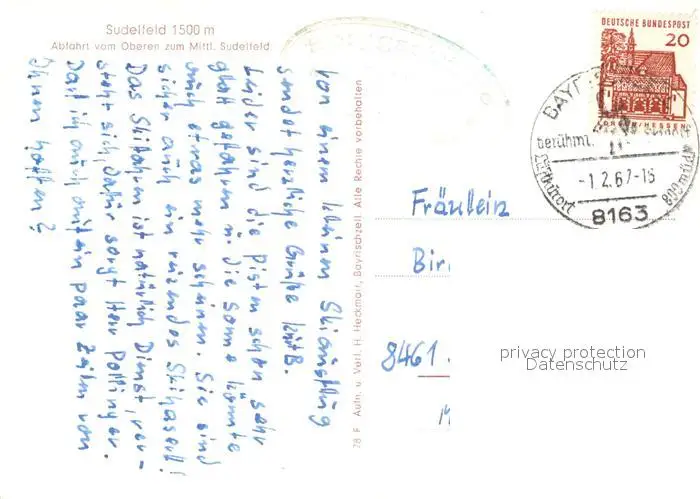 Sudelfeld 1500 m
Abfahrt vom Oberen zum Mittl. Sudelfeld
Von einem kleinen Skiausflug
sendet herzliche Grüße
Leider sind die Pisten schon sehr
glatt gefahren u. die Sonne könnte
auch etwas mehr scheinen. Sie sind
sicher auch ein reizendes Skihaserl!
Das Skifahren ist natürlich Dienst, ver-
steht sich, dafür sorgt Herr Pollinger.
Darf ich auch auf ein paar Zeilen von
Ihnen hoffen?
78 F Aufn. u. Verl. H. Heckmair, Bayrischzell. Alle Rechte vorbehalten
DEUTSCHE BUNDESPOST
20
LORSCH/HESSEN
BAYR
berühmt
-1.2.67-16
Luftkurort
800 m
8163
Fräulein
Bir
8461
privacy protection
Datenschutz